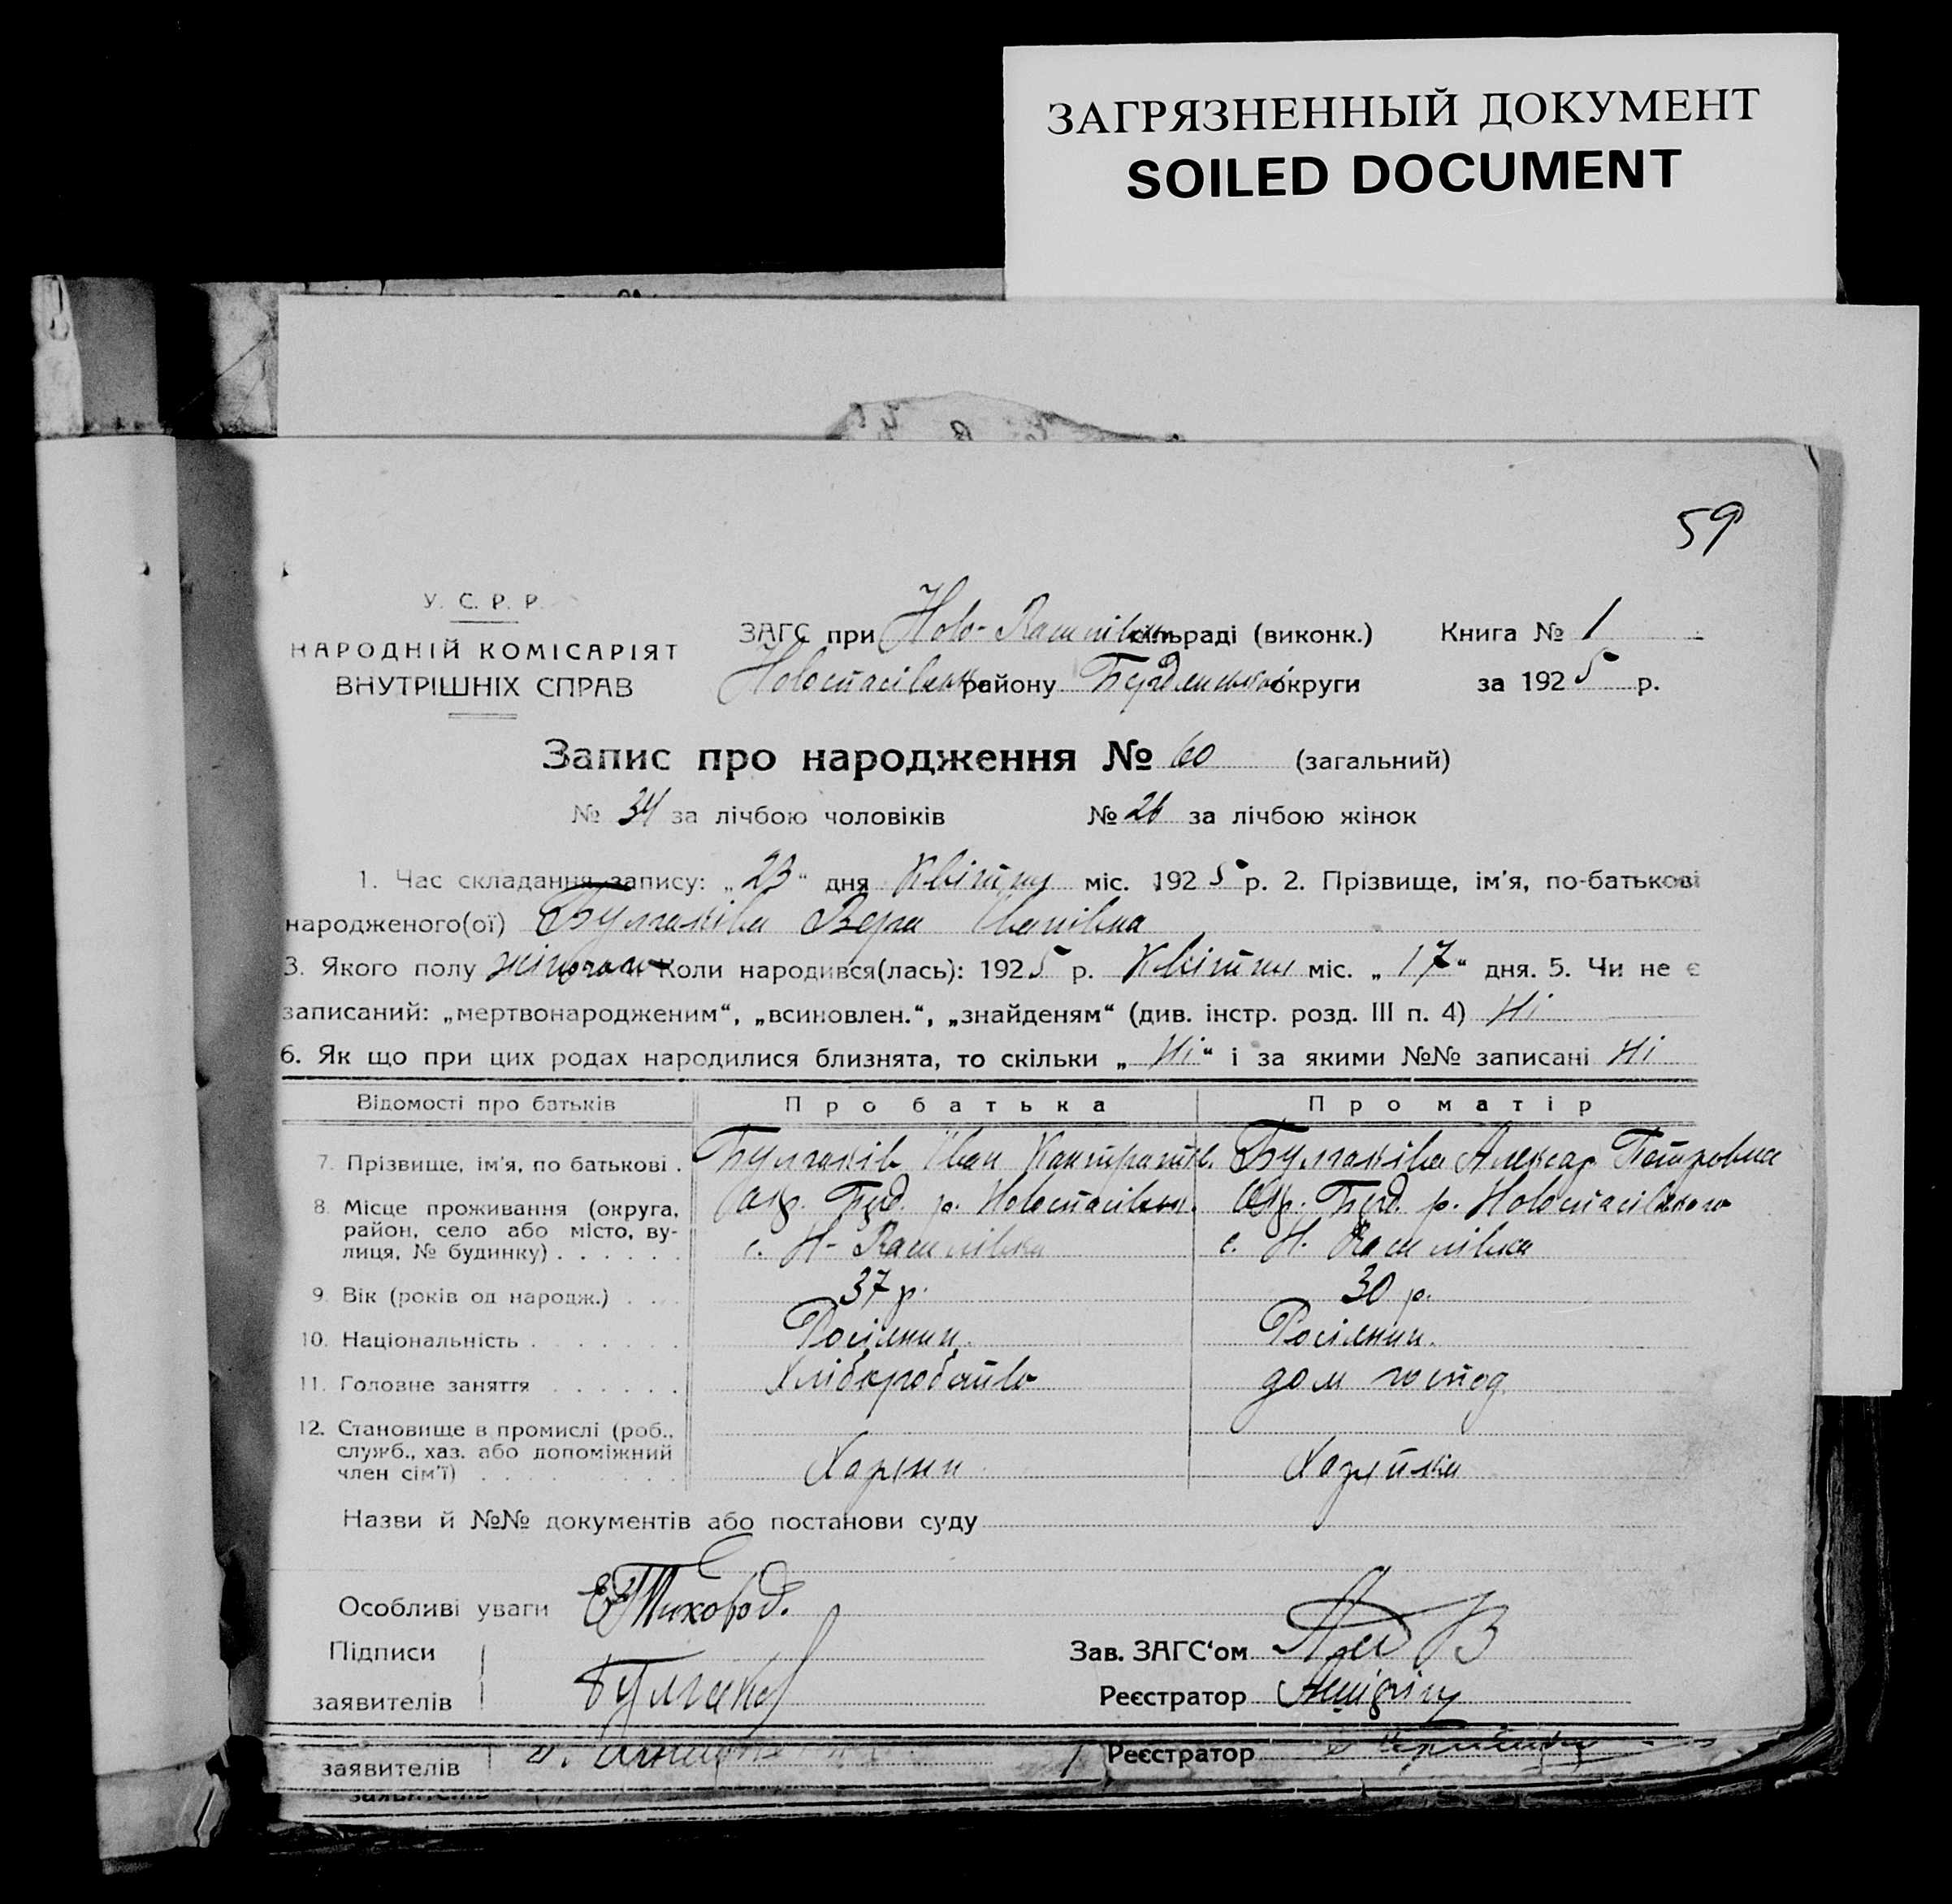 ЗАГРЯЗНЕННЫЙ ДОКУМЕНТ
SOILED DOCUMENT
59
У. С. Р. Р.
НАРОДНІЙ КОМІСАРІЯТ
ВНУТРІШНІХ СПРАВ
ЗАГС при Ново- сільраді (виконк.) Книга № 1
Новоспасівськ. району Бердянської округи за 1925 р.
Запис про народження № 60 (загальний)
№ 34 за лічбою чоловіків № 26 за лічбою жінок
1. Час складання запису: „23“ дня Квітня міс. 1925 р. 2. Прізвище, ім'я, по-батькові
народженого(ої) Булгаківа Вера Іванівна
3. Якого полу жіночого Коли народився(лась): 1925 р. Квітня міс. „17“ дня. 5. Чи не є
записаний: „мертвонародженим“, „всиновлен.“, „знайденям“ (див. інстр. розд. III п. 4) Ні
6. Як що при цих родах народилися близнята, то скільки „Ні“ і за якими №№ записані Ні
Відомості про батьків Про батька Про матір
7. Прізвище, ім'я, по батькові . Булгаків Іван Кантратів. Булгаківа Алексар Петровна
8. Місце проживання (округа, район, село або місто, вулиця, № будинку) . . . . . . Окр. Берд. р. Новоспасівськ. Окр. Берд. р. Новоспасівського
с. Н- с. Н.
9. Вік (років од народж.) . . . 37 р. 30 р.
10. Національність . . . . . . . Росіянин. Росіянин.
11. Головне заняття . . . . . . Хліборобство дом господ.
12. Становище в промислі (роб., служб., хаз. або допоміжний член сім'ї) . . . . . . . . . Хазяин Хазяйка
Назви й №№ документів або постанови суду
Особливі уваги
Підписи Зав. ЗАГС'ом
заявителів Булгаков Реєстратор
заявителів Реєстратор
заявителів